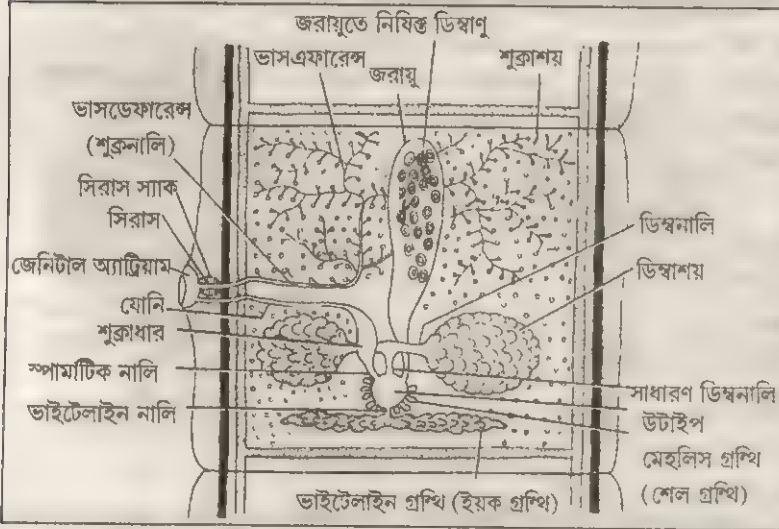 জরায়ুতে নিষিক্ত ডিম্বাণু
ভাসএফারেন্স
জরায়ু
শুক্রাশয়
ভাসডেফারেন্স
(শুক্রনালি)
সিরাস স্যাক
সিরাস
জেনিটাল অ্যাট্রিয়াম
যোনি
শুক্রাধার
স্পার্মাটিক নালি
ভাইটেলাইন নালি
ডিম্বনালি
ডিম্বাশয়
সাধারণ ডিম্বনালি
উটাইপ
মেহলিস গ্রন্থি
(শেল গ্রন্থি)
ভাইটেলাইন গ্রন্থি (ইয়ক গ্রন্থি)